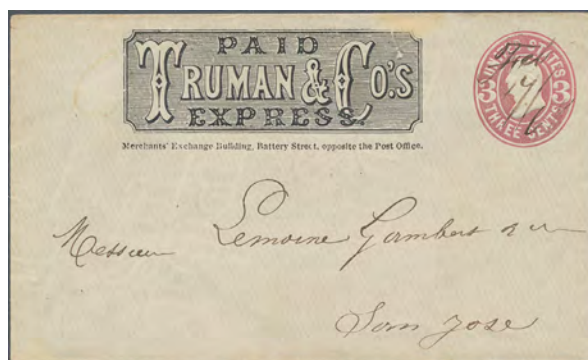 PAID
TRUMAN & Co's
EXPRESS.
Merchants' Exchange Building, Battery Street, opposite the Post Office.
THREE CENTS
Lemoine Gambert & Co
San Jose